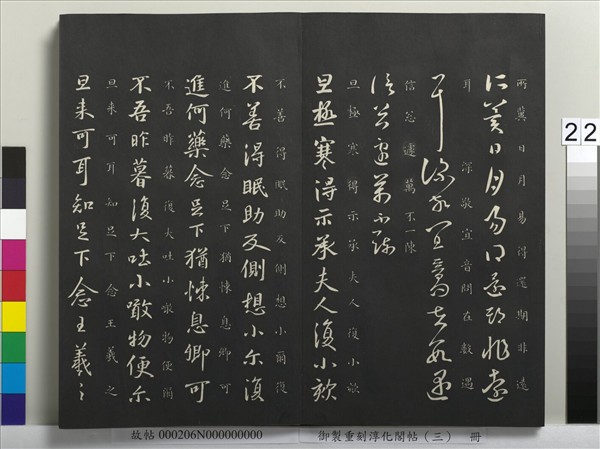 所冀日月易得還期非遠
所冀日月易得還期非遠
耳深敬宣音問在數遇
耳深敬宣音問在數遇
信忽遽萬不一陳
信忽遽萬不一陳
旦極寒得示承夫人復小欬
旦極寒得示承夫人復小欬
不善得眠助反側想小爾復
不善得眠助反側想小尔復
進何藥念足下猶悚息卿可
進何藥念足下猶悚息卿可
不吾昨暮復大吐小噉物便爾
不吾昨暮復大吐小噉物便尔
旦来可耳知足下念王羲之
旦来可耳知足下念王羲之
故帖 000206N000000000
御製重刻淳化閣帖（三） 冊
22